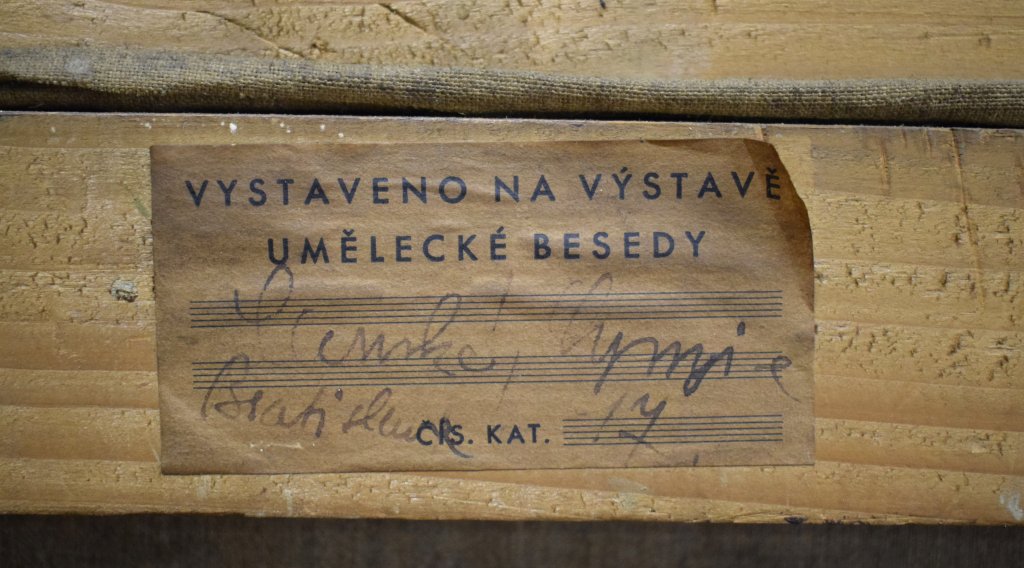 VYSTAVENO NA VÝSTAVĚ
UMĚLECKÉ BESEDY
Bratislava
ČÍS. KAT. 17